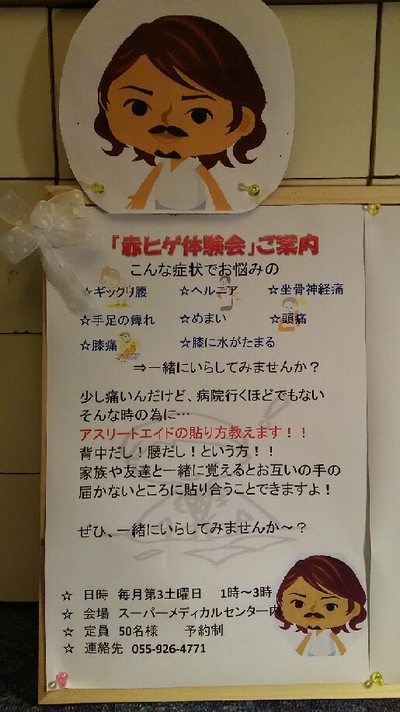 「赤ヒゲ体験会」ご案内
こんな症状でお悩みの
☆ギックリ腰　☆ヘルニア　☆坐骨神経痛
☆手足の痺れ　☆めまい　☆頭痛
☆膝痛　☆膝に水がたまる
⇒一緒にいらしてみませんか？
少し痛いんだけど、病院行くほどでもない
そんな時の為に…
アスリートエイドの貼り方教えます！！
背中だし！腰だし！という方！！
家族や友達と一緒に覚えるとお互いの手の
届かないところに貼り合うことできますよ！
ぜひ、一緒にいらしてみませんか～？
☆ 日時 毎月第3土曜日　1時～3時
☆ 会場 スーパーメディカルセンター内
☆ 定員 50名様　予約制
☆ 連絡先 055-926-4771